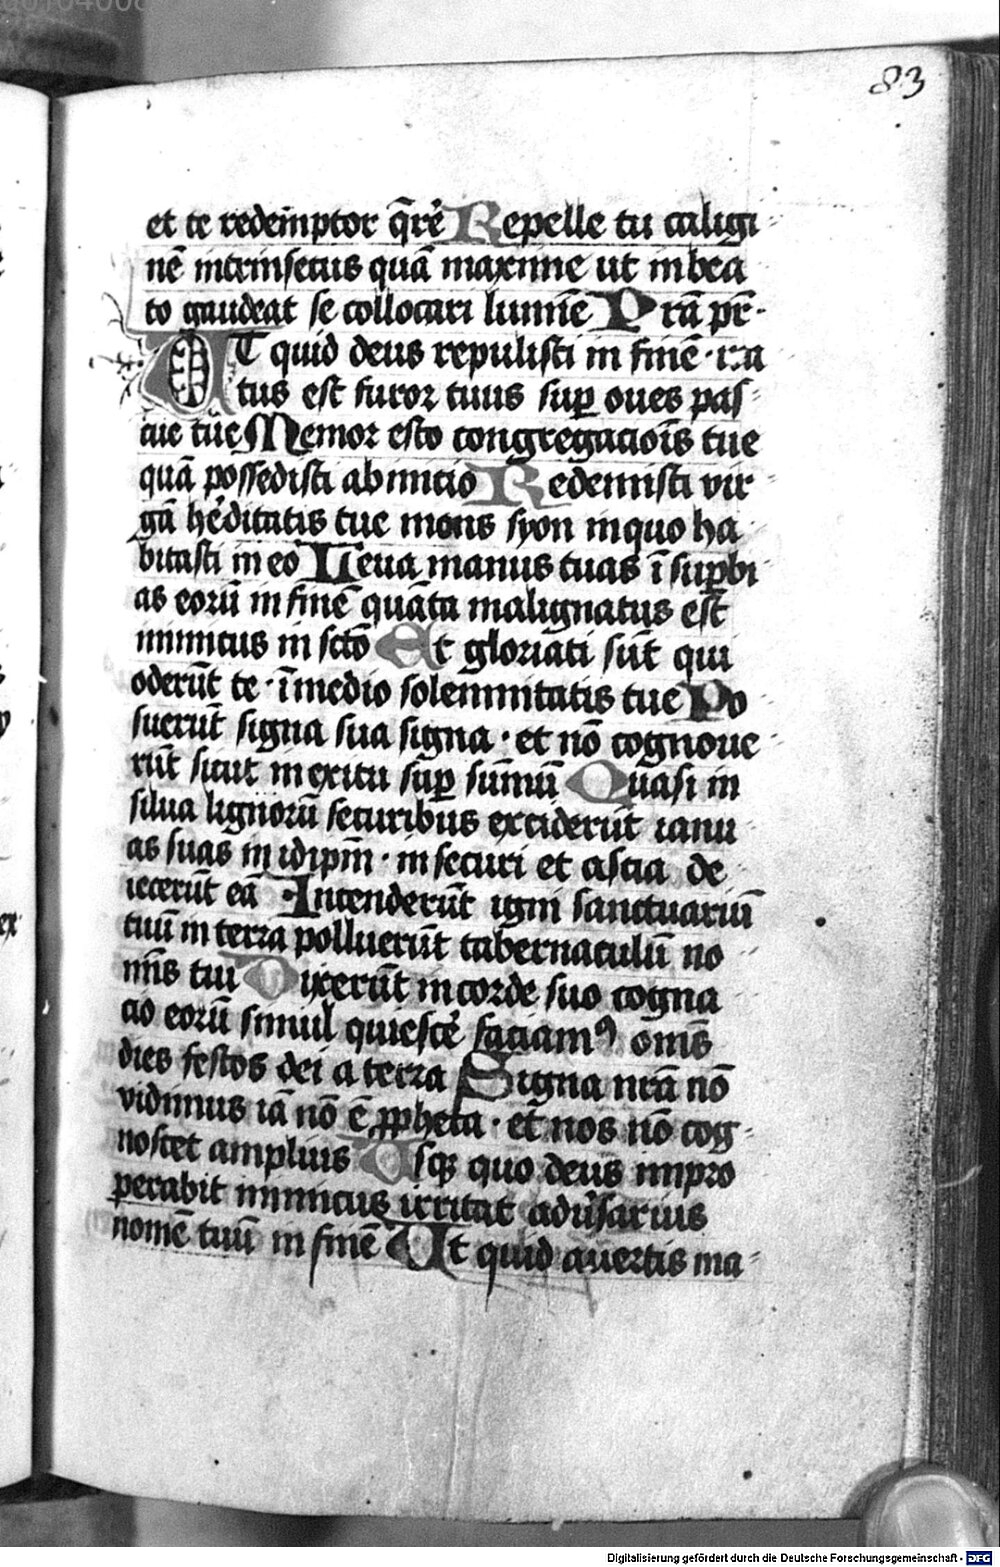 83
et te redemptor q̄rē Repelle tu caligi
nē intrinsecus quā maxime ut in bea
to gaudeat se collocari lumīe Prā pr̄.
UT quid deus repulisti in finē · ira
tus est furor tuus sup oues pas
cue tue Memor esto congregacōis tue
quā possedisti ab inicio Redemisti vir
gā hēditatis tue mons syon in quo ha
bitasti in eo Leua manus tuas ī supbi
as eorū in finē quāta malignatus est
inimicus in scō Et gloriati sūt qui
oderūt te · ī medio solemnitatis tue Po
suerūt signa sua signa · et nō cognoue
rūt sicut in exitu sup sūmū Quasi in
silua lignorū securibus exciderūt ianu
as suas in idipm̄ · in securi et ascia de
iecerūt eā Incenderūt igni sanctuariū
tuū in terra polluerūt tabernaculū no
mīs tui Dixerūt in corde suo cogna
cio eorū simul quiescē faciamꝰ om̄s
dies festos dei a terra Signa nrā nō
vidimus iā nō ē ppheta · et nos nō cog
noscet amplius Usqꝫ quo deus impro
perabit inimicus irritat adūsarius
nomē tuū in finē Ut quid auertis ma
Digitalisierung gefördert durch die Deutsche Forschungsgemeinschaft - DFG